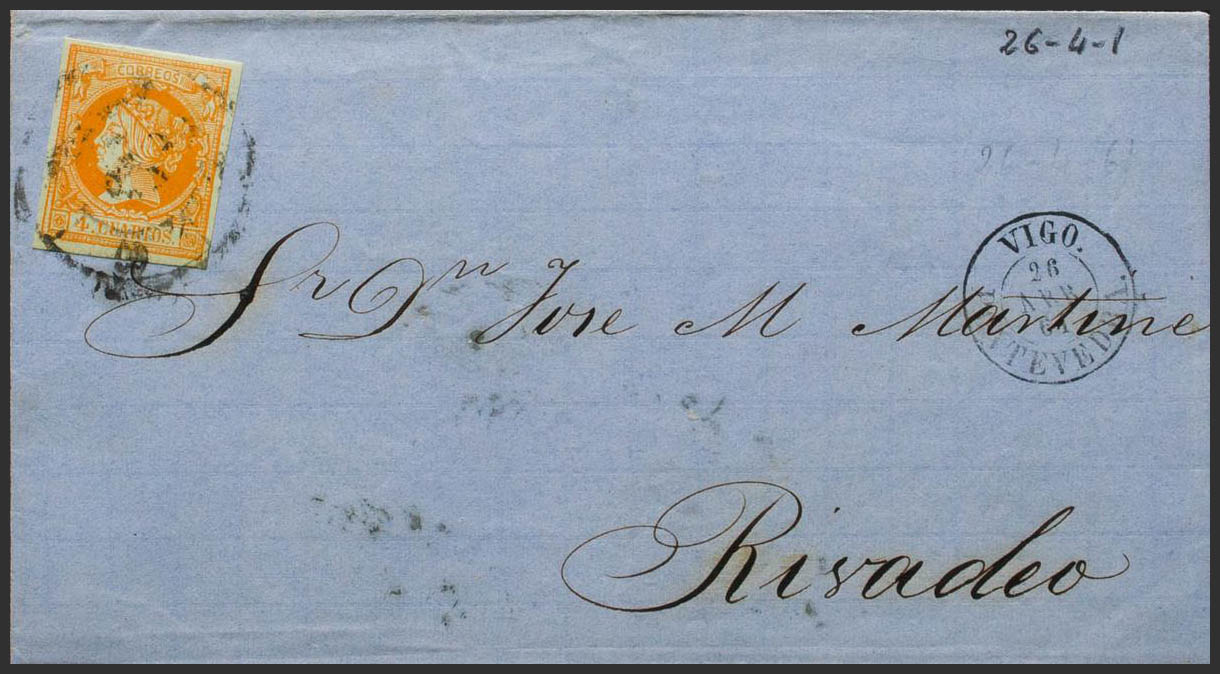 26-4-1
CORREOS
4. CUARTOS.
VIGO.
26
ABR
61
Sr Dn Jose M Martine
Rivadeo